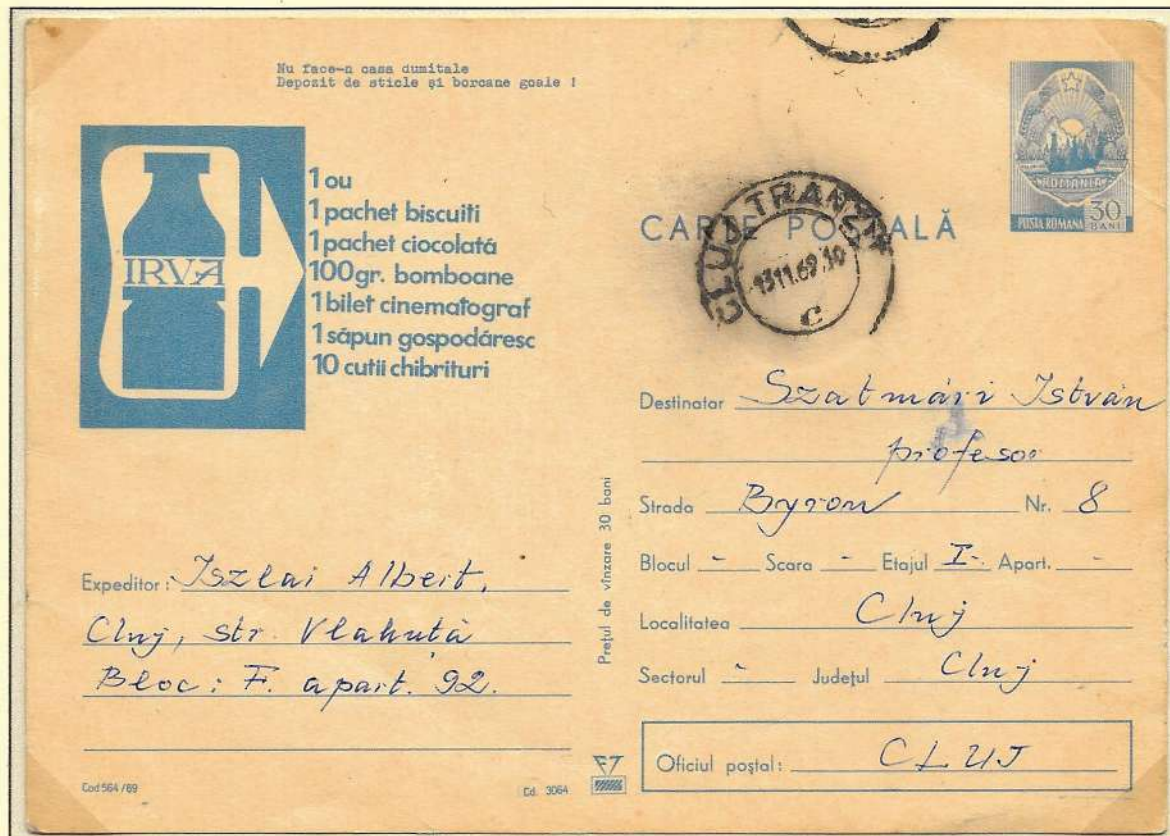 Nu face-n casa dumitale
Depozit de sticle și borcane goale !
IRVA
1 ou
1 pachet biscuiti
1 pachet ciocolată
100gr. bomboane
1 bilet cinematograf
1 săpun gospodăresc
10 cutii chibrituri
Expeditor: Iszlai Albert,
Cluj, str. Vlahuță
Bloc: F. apart. 92.
Cod 564/69
Cd. 3064
Prețul de vînzare 30 bani
ROMÂNIA
POSTA ROMANA 30 BANI
CARTE POȘTALĂ
CLUJ TRANZIT
13 11.69.10
C
Destinatar Szatmári István
profesor
Strada Byron Nr. 8
Blocul - Scara - Etajul I- Apart. -
Localitatea Cluj
Sectorul - Județul Cluj
Oficiul poștal: CLUJ